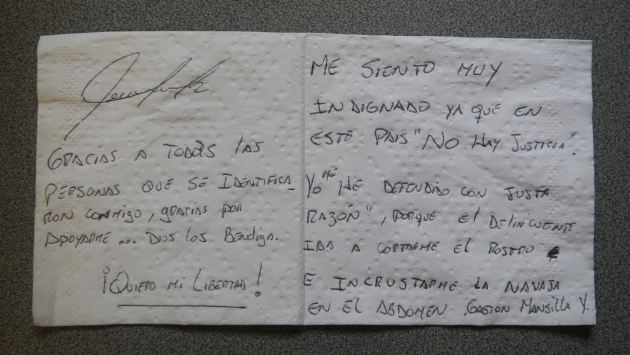 GRACIAS A TODOS LAS
PERSONAS QUE SE IDENTIFICA
RON CONMIGO, GRACIAS POR
APOYARME... DIOS LOS BENDIGA.
¡QUIERO MI LIBERTAD!
ME SIENTO MUY
INDIGNADO YA QUE EN
ESTE PAIS "NO HAY JUSTICIA".
YO "ME HE DEFENDIDO CON JUSTA
RAZÓN", PORQUE EL DELINCUENTE
IBA A CORTARME EL ROSTRO
E INCRUSTARME LA NAVAJA
EN EL ABDOMEN. GASTON MANSILLA Y.